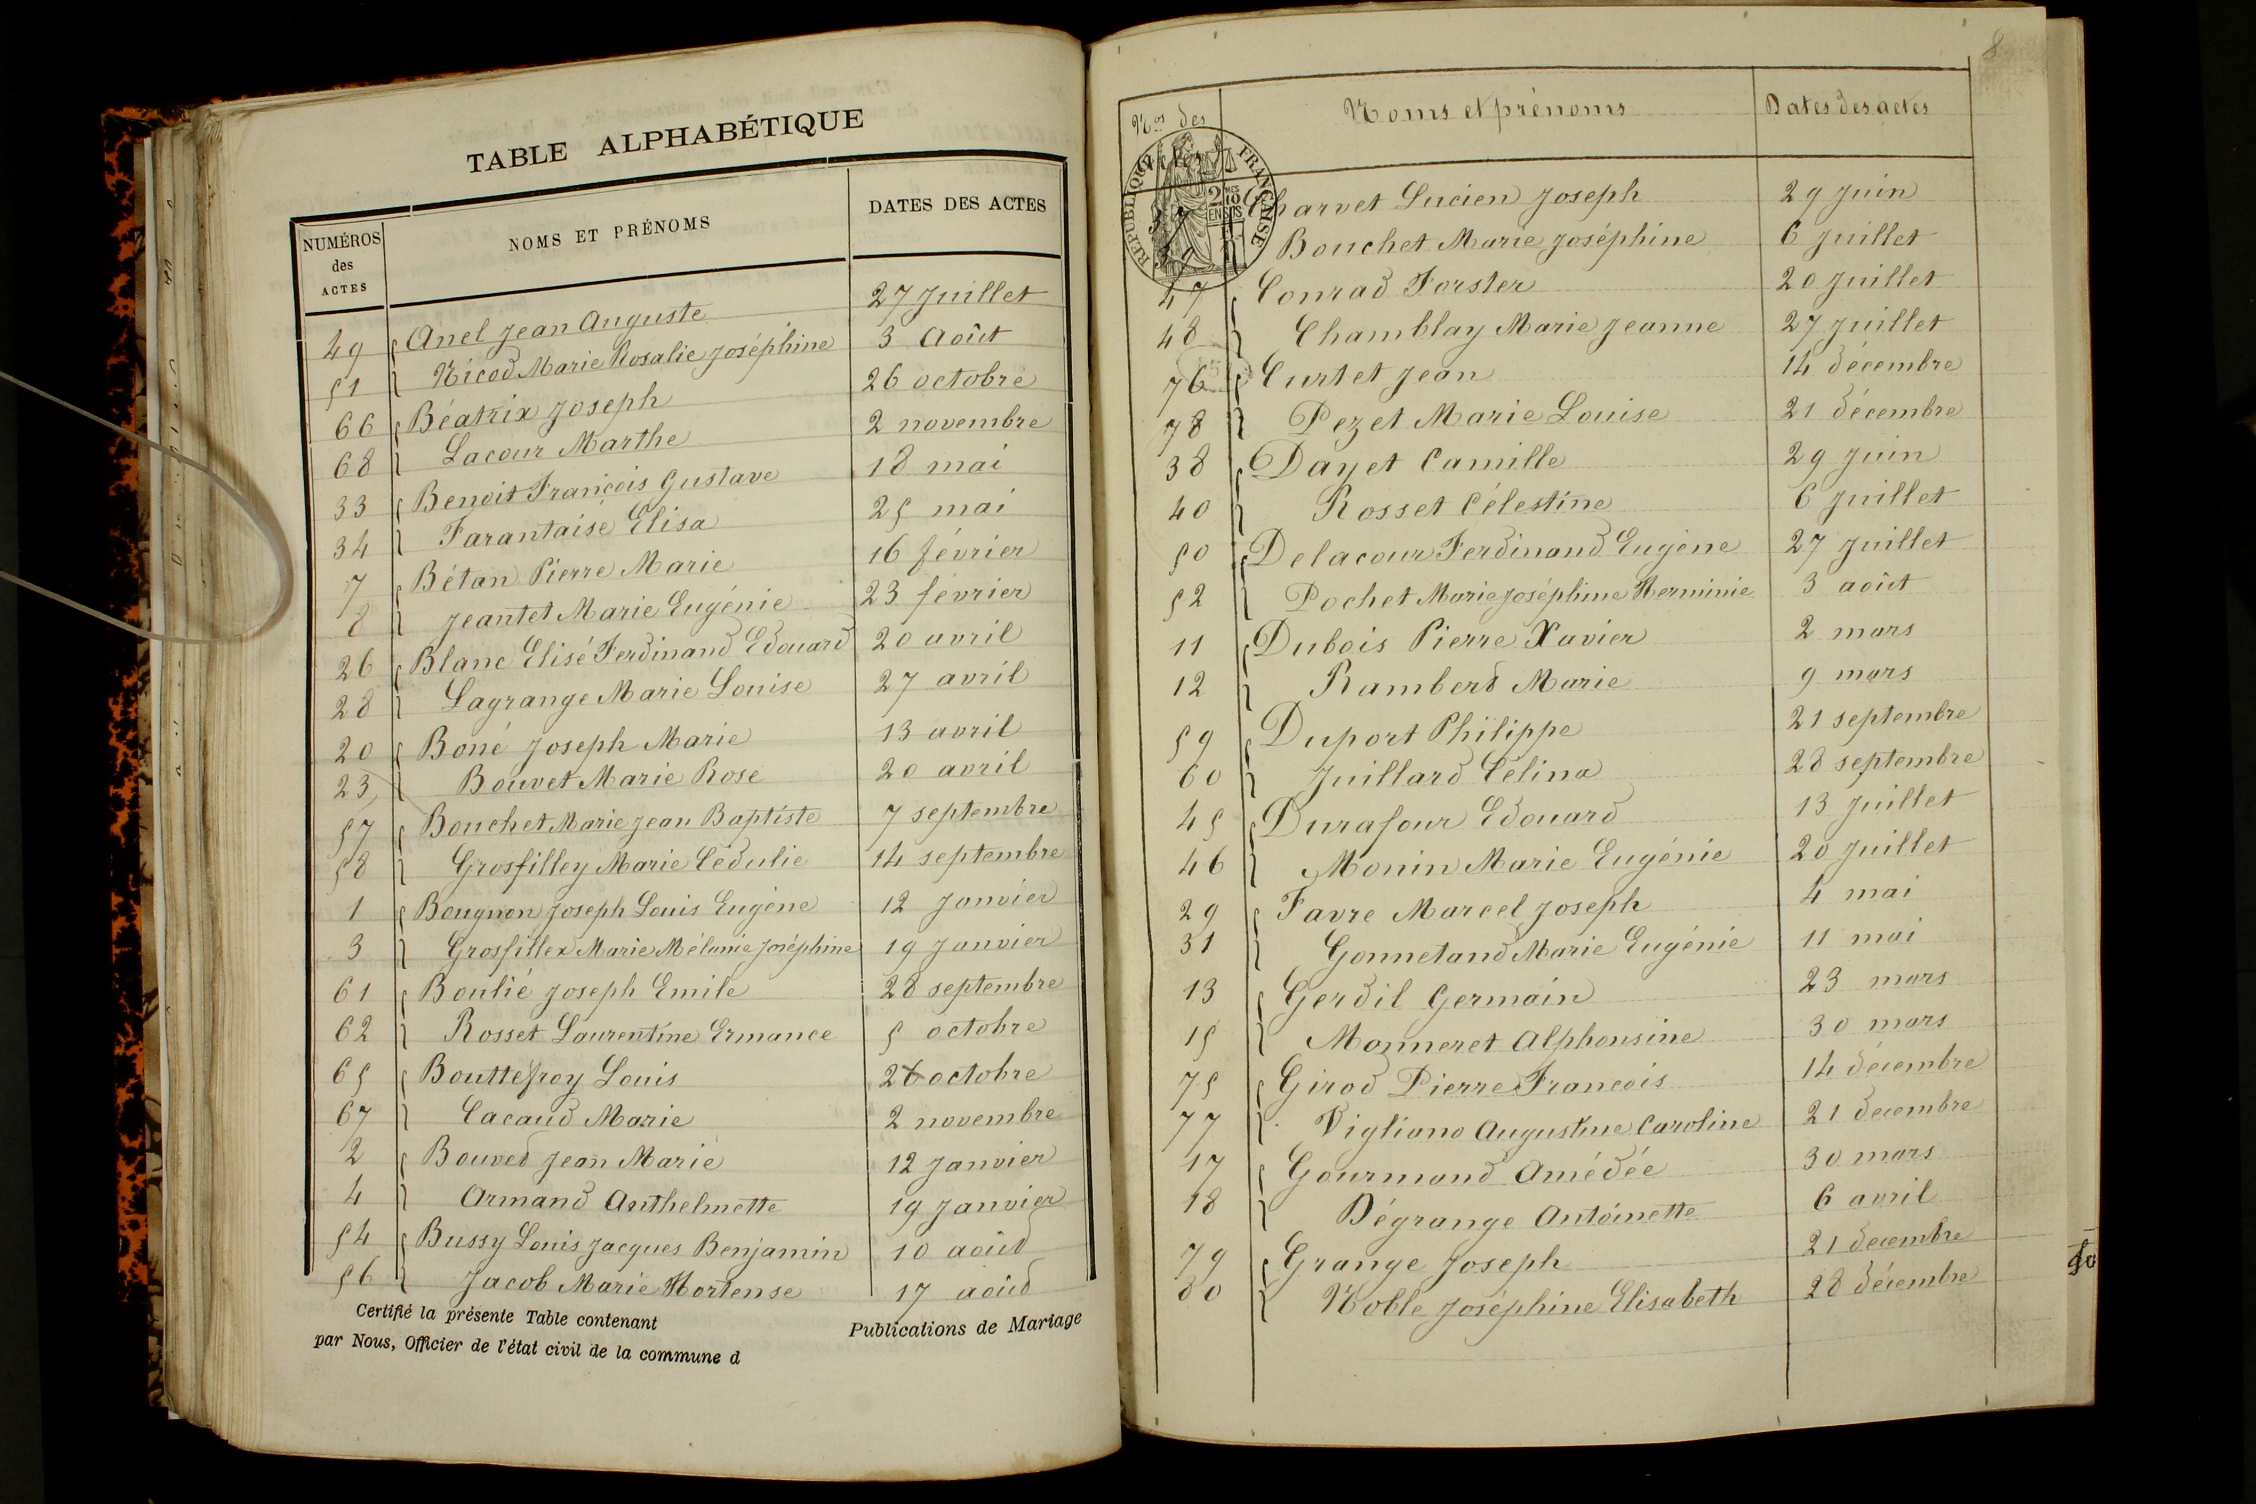 TABLE ALPHABÉTIQUE
NUMÉROS des ACTES NOMS ET PRÉNOMS DATES DES ACTES
49 Anel Jean Auguste 27 Juillet
51 Nicod Marie Rosalie Joséphine 3 Août
66 Béatrix Joseph 26 octobre
68 Lacour Marthe 2 novembre
33 Benoit François Gustave 18 mai
34 Tarantaise Elisa 25 mai
7 Bétan Pierre Marie 16 février
8 Jeantet Marie Eugénie 23 février
26 Blanc Elisé Ferdinand Edouard 20 avril
28 Lagrange Marie Louise 27 avril
20 Boné Joseph Marie 13 avril
23 Bouvet Marie Rose 20 avril
57 Bouchet Marie Jean Baptiste 7 septembre
58 Grosfilley Marie Cédulie 14 septembre
1 Bougnon Joseph Louis Eugène 12 Janvier
3 Grosfillex Marie Mélanie Joséphine 19 Janvier
61 Boulié Joseph Emile 28 septembre
62 Rosset Laurentine Ermance 5 octobre
65 Bouttefroy Louis 26 octobre
67 Cacaud Marie 2 novembre
2 Bouved Jean Marie 12 Janvier
4 Armand Anthelmette 19 Janvier
54 Bussy Louis Jacques Benjamin 10 août
56 Jacob Marie Hortense 17 août
Certifié la présente Table contenant Publications de Mariage
par Nous, Officier de l'état civil de la commune d
8
Nos des Noms et prénoms Dates des actes
RÉPUBLIQUE FRANÇAISE
Charvet Lucien Joseph 29 Juin
Bouchet Marie Joséphine 6 Juillet
47 Conrad Forster 20 Juillet
48 Chamblay Marie Jeanne 27 Juillet
76 Curtet Jean 14 décembre
78 Pezet Marie Louise 21 décembre
38 Dayet Camille 29 Juin
40 Rosset Célestine 6 Juillet
50 Delacour Ferdinand Eugène 27 Juillet
52 Pochet Marie Joséphine Herminie 3 août
11 Dubois Pierre Xavier 2 mars
12 Rambert Marie 9 mars
59 Duport Philippe 21 septembre
60 Juillard Célina 28 septembre
45 Durafour Edouard 13 Juillet
46 Monin Marie Eugénie 20 Juillet
29 Favre Marcel Joseph 4 mai
31 Gonnetand Marie Eugénie 11 mai
13 Gerdil Germain 23 mars
15 Monneret Alphonsine 30 mars
75 Girod Pierre François 14 décembre
77 Vigliano Augustine Caroline 21 decembre
17 Gourmand Amédée 30 mars
18 Dégrange Antoinette 6 avril
79 Grange Joseph 21 decembre
80 Noble Joséphine Elisabeth 28 décembre